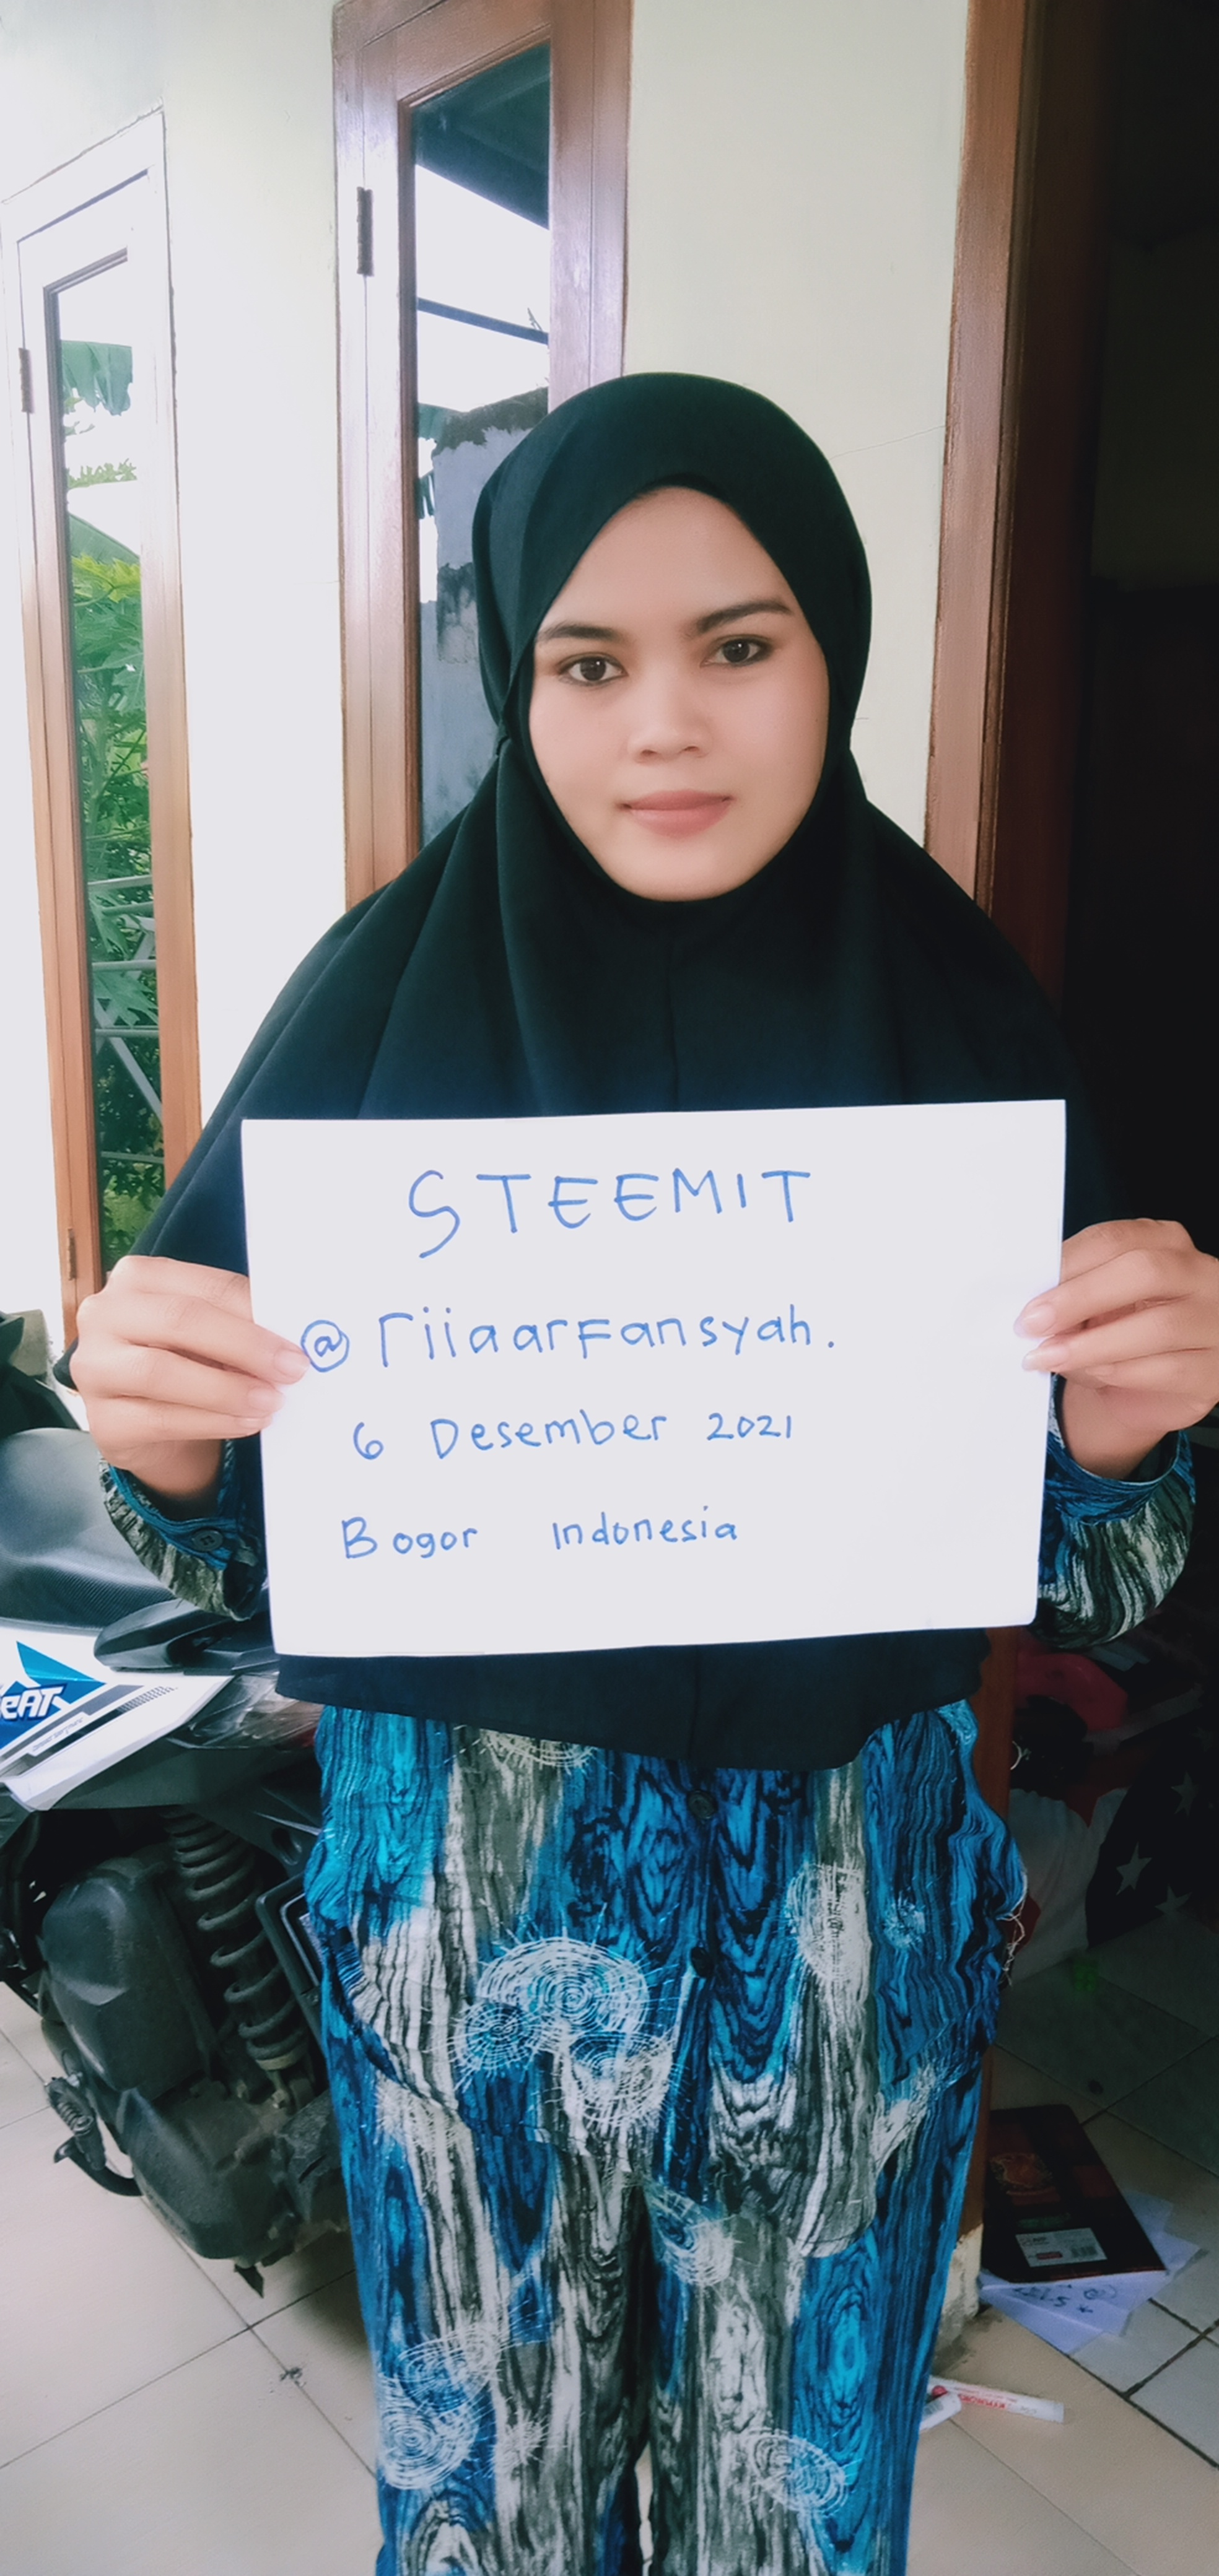 STEEMIT
@riiaarfansyah.
6 Desember 2021
Bogor Indonesia
eAT